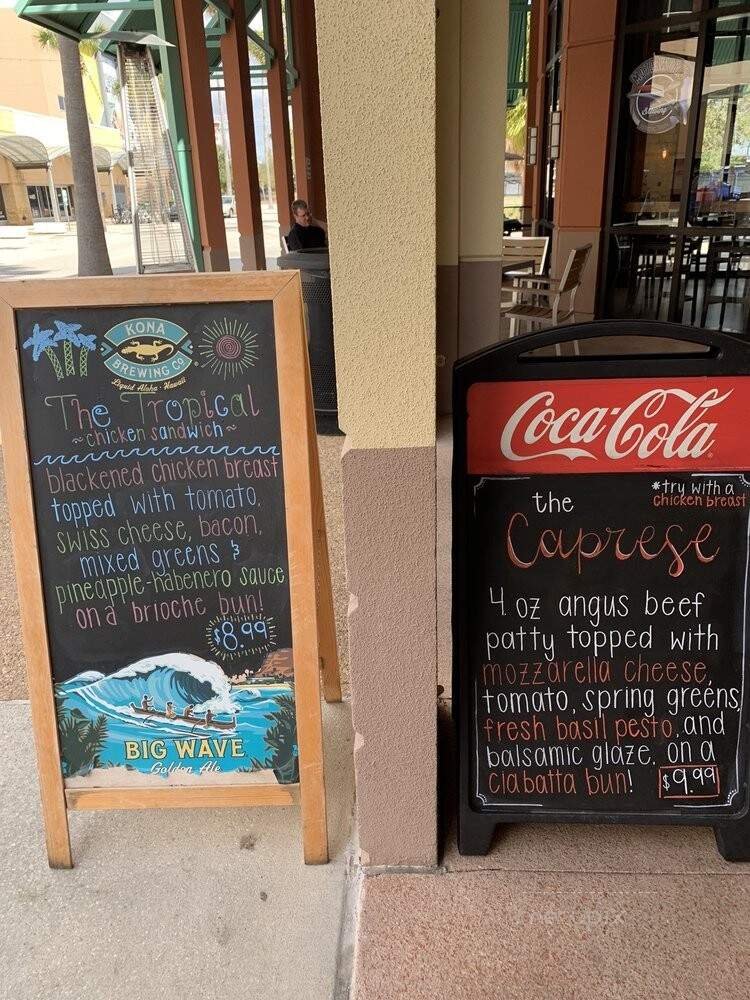 KONA
BREWING CO.
Liquid Aloha · Hawaii
The Tropical
~chicken sandwich~
blackened chicken breast
topped with tomato,
swiss cheese, bacon,
mixed greens &
pineapple-habenero sauce
on a brioche bun!
$8.99
BIG WAVE
Golden Ale
Coca-Cola
*try with a
chicken breast
the
Caprese
4 oz angus beef
patty topped with
mozzarella cheese,
tomato, spring greens,
fresh basil pesto, and
balsamic glaze, on a
ciabatta bun! $9.99